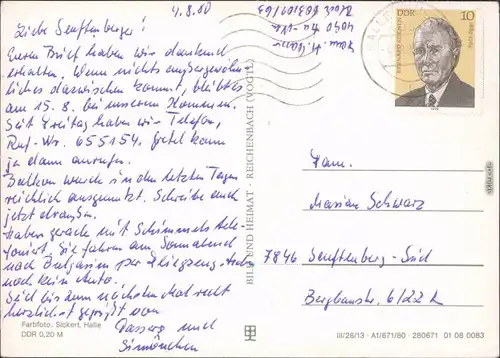 4.8.80
Liebe Senftenberger!
Euren Brief haben wir dankend
erhalten. Wenn nichts außergewöhn-
liches dazwischen kommt, bleibt es
am 15.8. bei unserem Kommen.
Seit Freitag haben wir Telefon,
Ruf-Nr. 655154. Gretel kann
ja dann anrufen.
Balkon wurde in den letzten Tagen
reichlich ausgenutzt. Schreibe auch
jetzt draußen.
Haben gerade mit Schimmels tele-
foniert. Sie fahren am Sonnabend
nach Bulgarien per Fliegzeug
noch kein Auto.
Seid bis zum nächsten Mal recht
herzlichst gegrüßt von
und
Farbfoto: Sickert, Halle
DDR 0,20 M
BILD UND HEIMAT · REICHENBACH (VOGTL)
4090
DDR 10
BERNARD KOENEN
1978
Fam.
Marian Schwarz
7846 Senftenberg-Süd
Bergbaustr. 6/22 K
III/26/13 · A1/671/80 · 280671 01 08 0083